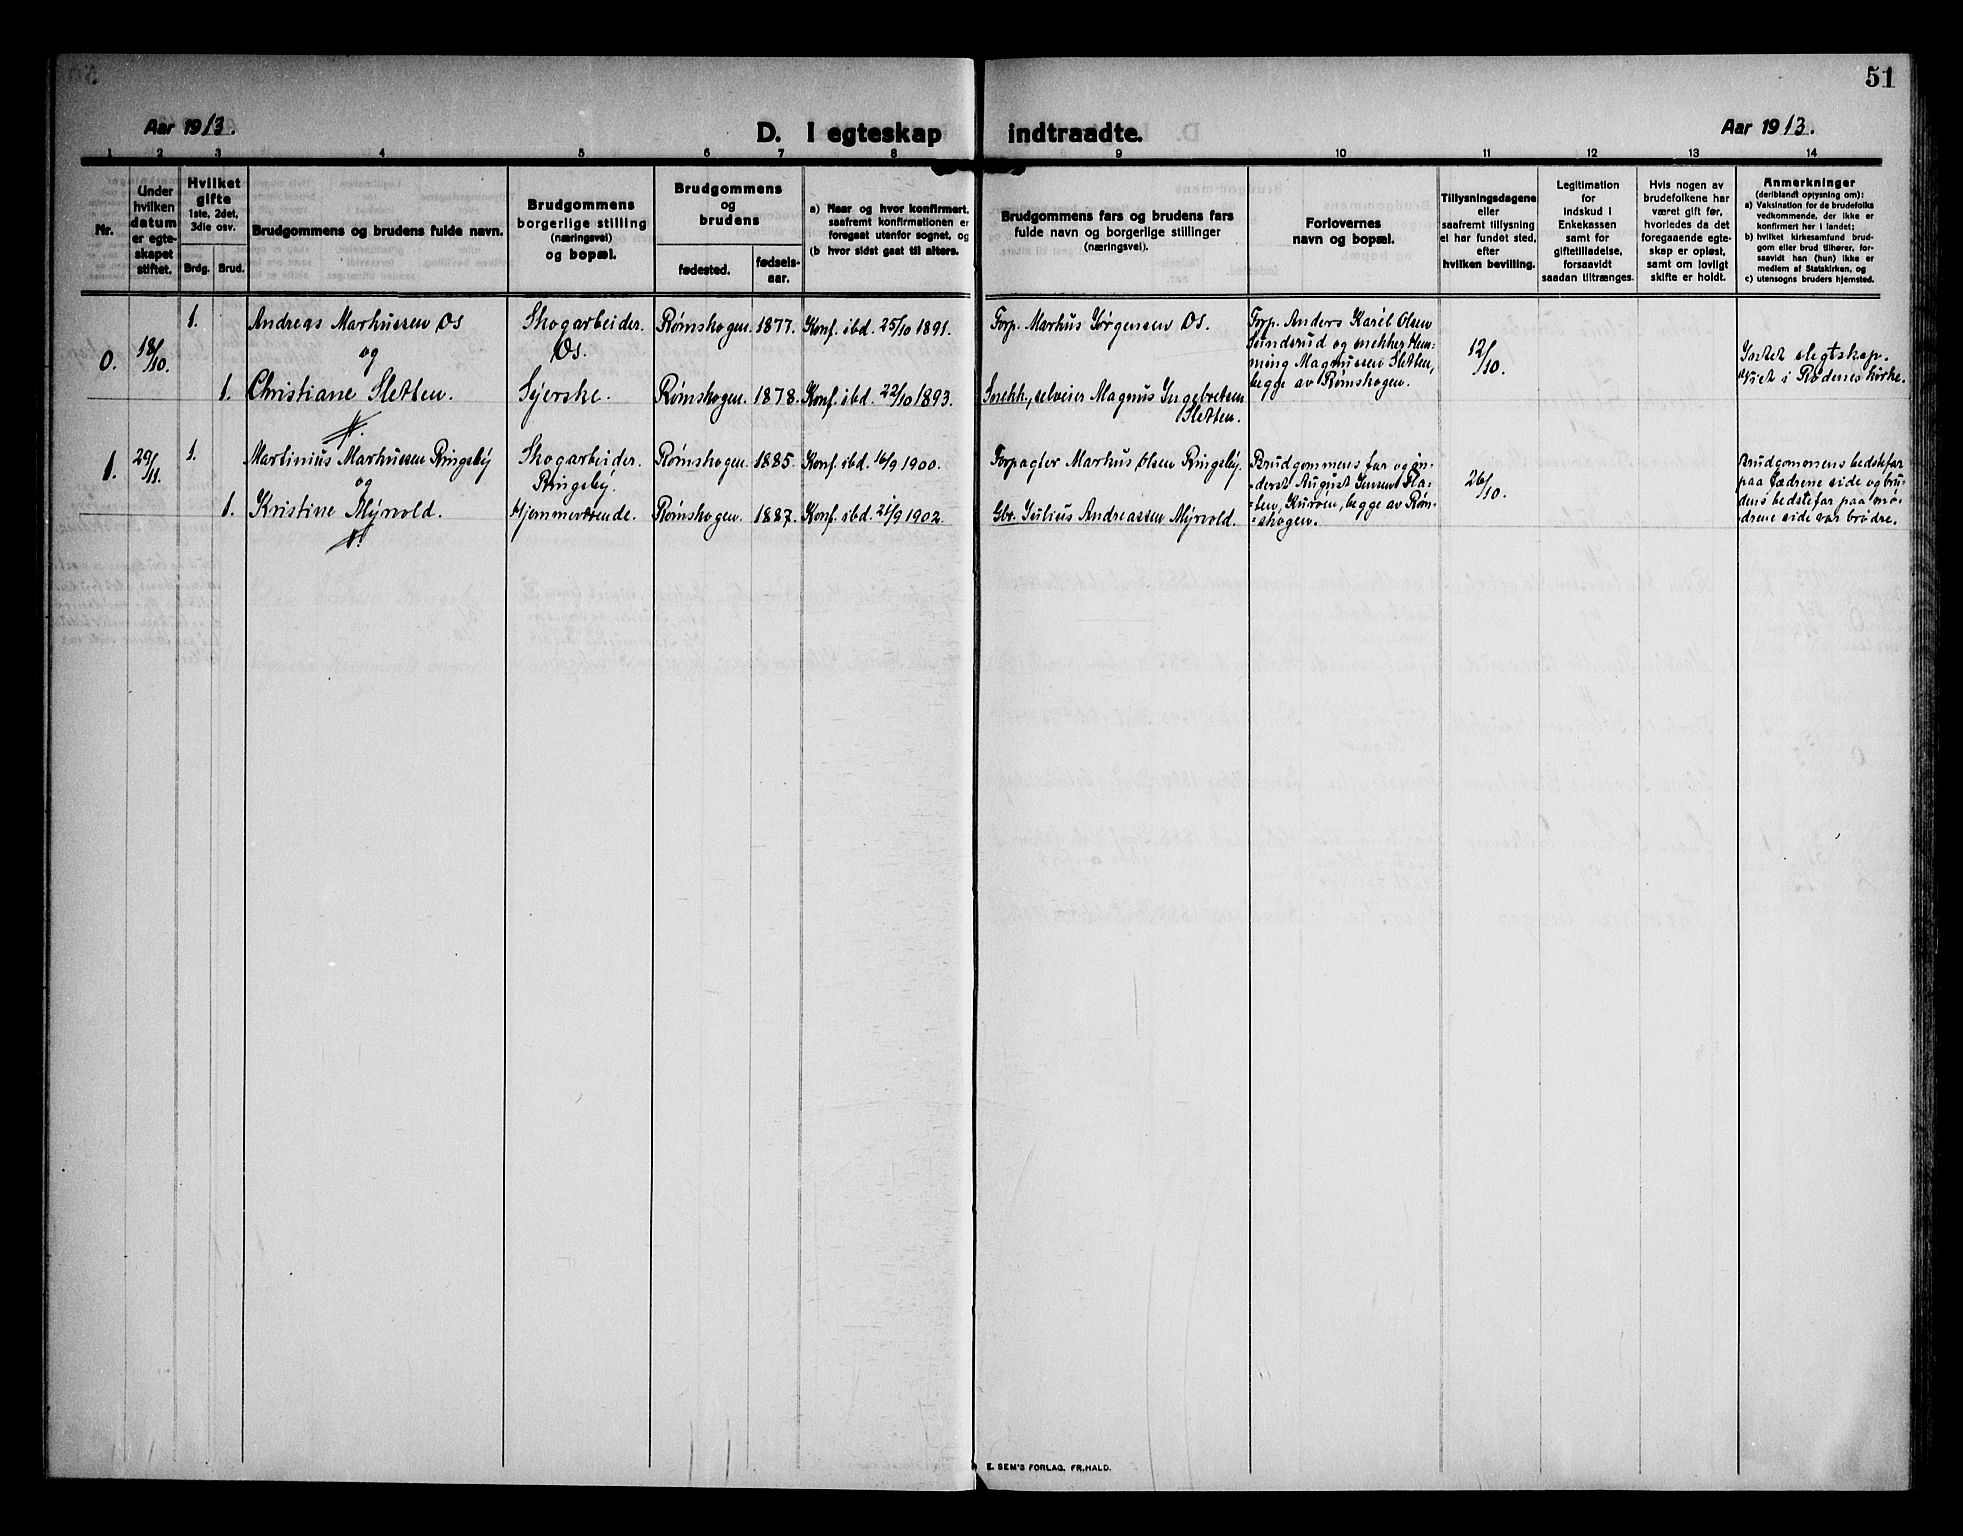 51
Aar 1913.
D. I egteskap indtraadte.
Aar 1913.
1 2 3 4 5 6 7 8 9 10 11 12 13 14
Nr.
Under
hvilken
datum
er egte-
skapet
stiftet.
Hvilket
gifte
1ste, 2det,
3die osv.
Brdg. Brud.
Brudgommens og brudens fulde navn.
Brudgommens
borgerlige stilling
(næringsvei)
og bopæl.
Brudgommens
og
brudens
fødested.
fødsels-
aar.
a) Naar og hvor konfirmert,
saafremt konfirmationen er
foregaat utenfor sognet, og
(b hvor sidst gaat til alters.
Brudgommens fars og brudens fars
fulde navn og borgerlige stillinger
(næringsvei).
Forlovernes
navn og bopæl.
Tillysningsdagene
eller
saafremt tillysning
ei har fundet sted,
efter
hvilken bevilling.
Legitimation
for
indskud i
Enkekassen
samt for
giftetilladelse,
forsaavidt
saadan tiltrænges.
Hvis nogen av
brudefolkene har
været gift før,
hvorledes da det
foregaaende egte-
skap er opløst,
samt om lovligt
skifte er holdt.
Anmerkninger
(deriblandt oplysning om):
a) Vaksination for de brudefolks
vedkommende, der ikke er
konfirmert her i landet;
b) hvilket kirkesamfund brud-
gom eller brud tilhører, for-
saavidt han (hun) ikke er
medlem af Statskirken, og
c) utensogns bruders hjemsted.
0. 18/10. 1. Andreas Markussen Os
og
Skogarbeider.
Os.
Rømskogen. 1877. Konf. ibd. 25/10 1891.
Forp. Markus Jørgensen Os.
Forp. Anders Karél Olsen
Sundsrud og snekker Hen-
ning Magnussen Sletten,
begge av Rømskogen.
12/10.
Intet slegtskap.
Viet i Rødenes kirke.
1. Christiane Sletten.
Syerske.
Rømskogen. 1878. Konf. ibd. 22/10 1893.
Snekk., selveier Magnus Ingebretsen
Sletten.
1. 29/11. 1. Martinius Markussen Ringsby
og
Skogarbeider.
Ringsby.
Rømskogen. 1885. Konf. ibd. 16/9 1900.
Forpagter Markus Olsen Ringsby.
Brudgommens far og in-
derst August Jensen Sla-
ten, Kurøen, begge av Røm-
skogen.
26/10.
Brudgommens bedstefar
paa fædrene side og bru-
dens bedstefar paa mø-
drene side var brødre.
1. Kristine Myrvold.
Hjemmeværende.
Rømskogen. 1887. Konf. ibd. 21/9 1902.
Gbr. Julius Andreassen Myrvold.
E. SEM'S FORLAG, FR.HALD.